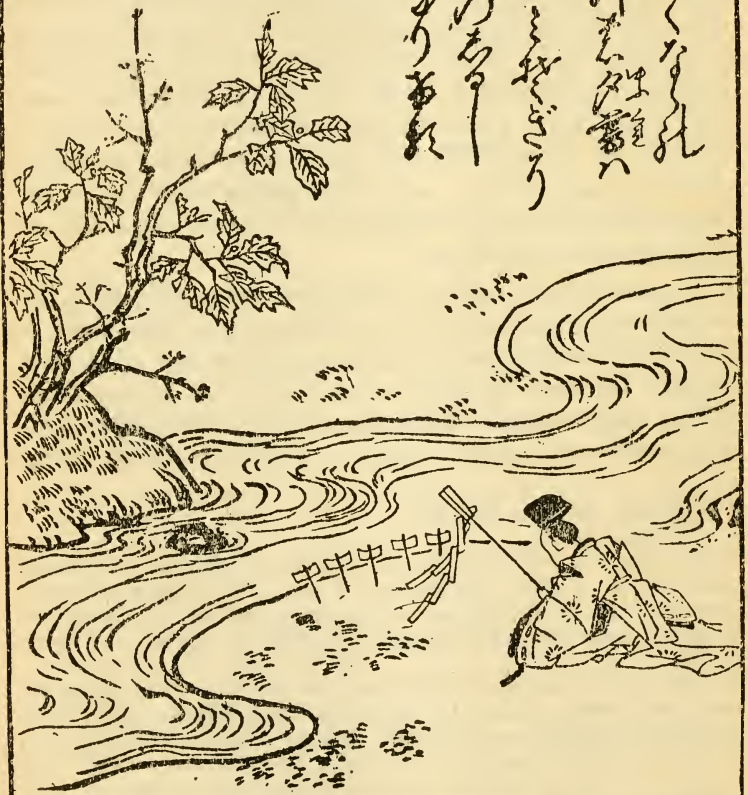 くならの
川の夕暮ハ
ミそぎそ
のしるし
なりける